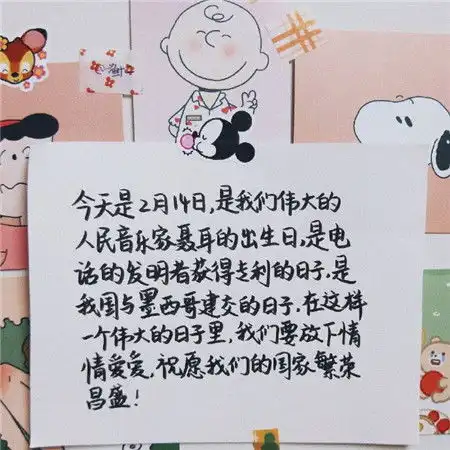 今天是2月14日,是我们伟大的
人民音乐家聂耳的出生日,是电
话的发明者获得专利的日子.是
我国与墨西哥建交的日子.在这样
一个伟大的日子里,我们要放下情
情爱爱,祝愿我们的国家繁荣
昌盛!